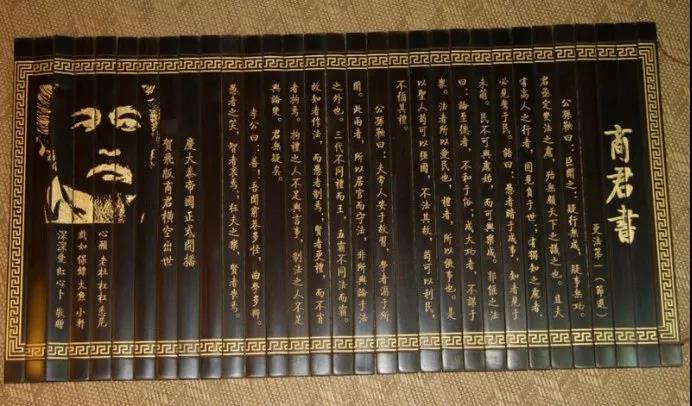 商君書
更法第一（節選）
公孫鞅曰：臣聞之：疑行無成，疑事無功。
君亟定變法之慮，殆無顧天下之議之也。且夫
有高人之行者，固見負于世；有獨知之慮者，
必見訾于民。語曰：愚者暗于成事，知者見于
未萌。民不可與慮始，而可與樂成。郭偃之法
曰：論至德者，不和于俗；成大功者，不謀于
衆。法者所以愛民也，禮者，所以便事也。是
以聖人苟可以强國，不法其故，苟可以利民，
不循其禮。
公孫鞅曰：夫常人安于故習，學者溺于所
聞。此兩者，所以居官而守法，非所與論于法
之外也。三代不同禮而王，五霸不同法而霸。
故知者作法，而愚者制焉；賢者更禮，而不肖
者拘焉。拘禮之人不足與言事，制法之人不足
與論變。君無疑矣。
孝公曰：善！吾聞窮巷多怪，曲學多辨。
愚者之笑，智者哀焉；狂夫之樂，賢者喪焉。
慶大秦帝國正式開播
賀飛版商君橫空出世
心願 老杜 杜杜 悉尼
大熊 小軒
深深愛 紅心卜 敬贈